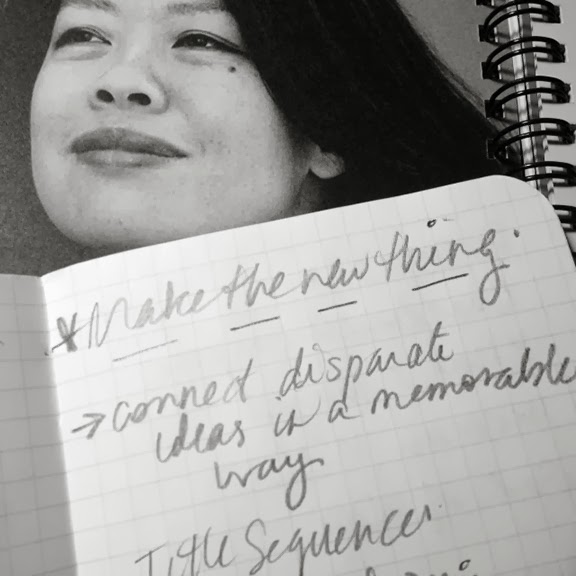 * Make the new thing.
→ connect disparate
ideas in a memorable
way
Title Sequences